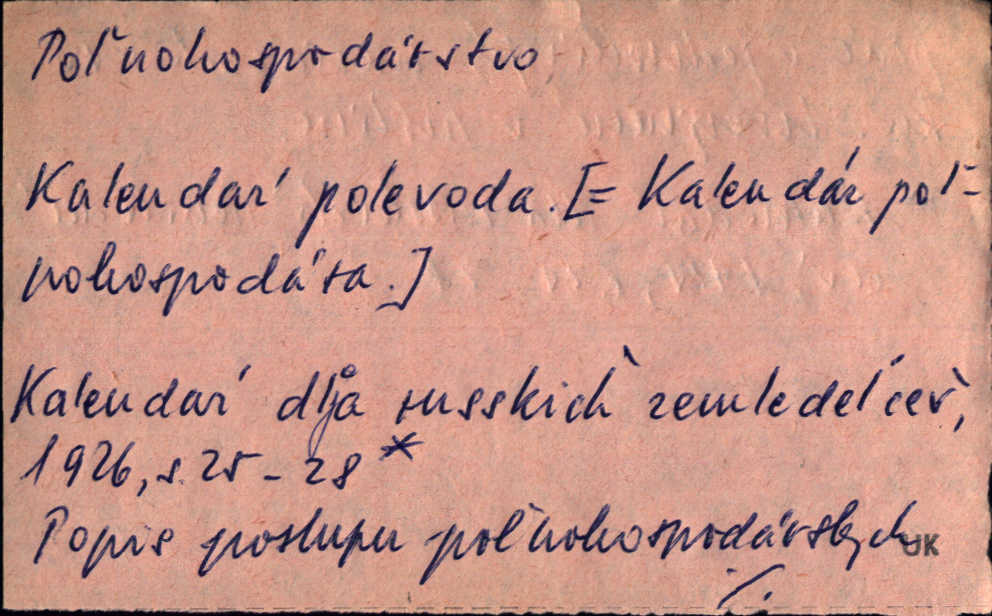 Poľnohospodárstvo
Kalendar' polevoda. [= Kalendár poľ-
nohospodára.]
Kalendar' dlja russkich zemledeľcev,
1926, s. 25 - 28 *
Popis postupu poľnohospodárskych
UK
./.